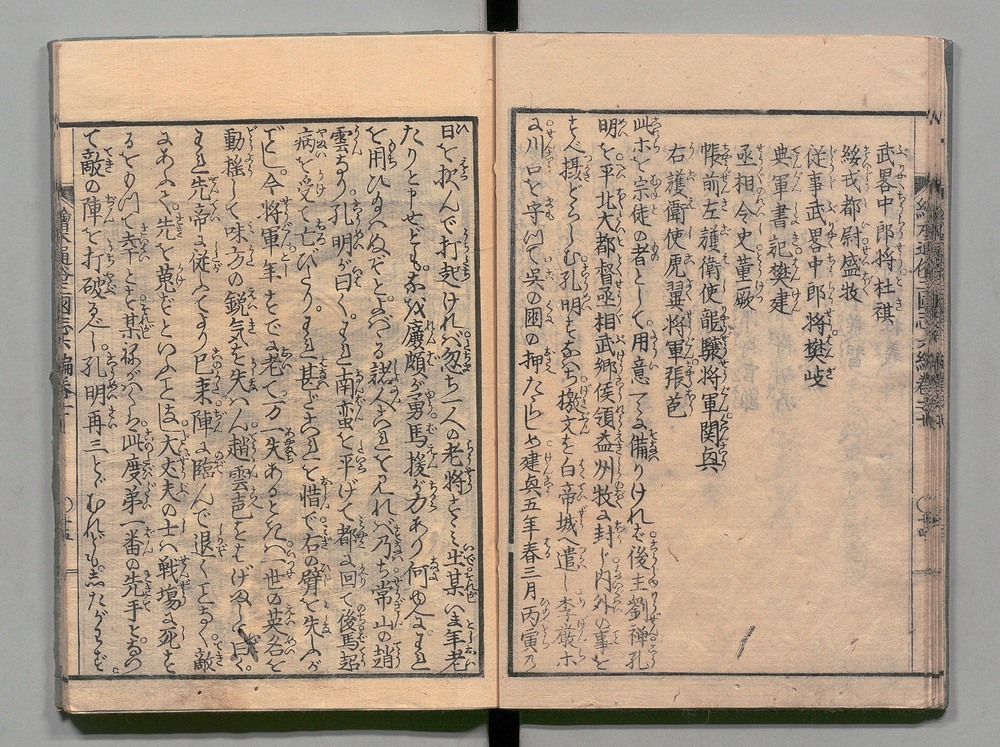 武畧中郎将杜祺
綏戎都尉盛牧
従事武畧中郎将樊岐
典軍書記樊建
丞相令史董厥
帳前左護衛使龍驤将軍関兵
右護衛使虎翼将軍張苞
此ホを宗徒の者として用意すでに備りけれバ後主劉禅孔
明を平北大都督丞相武郷侯領益州牧に封じ内外の事を
摂どらしむ孔明すなハち檄文を白帝城へ遣し李厳ホ
に川口を守りて呉の国の押たらしめ建兵五年春三月丙寅の
日を択んで打起けれバ忽ち一人の老将すゝミ出某いま年老
たりと申せども廉頗が勇馬援が力あり何ゆへにわれ
を用ひ給ハぬぞとよバゝる諸人これをミれバ乃ち常山の趙
雲なり孔明が曰くわれ南蛮を平げて都に回て後馬超
病を受て亡ひたりわれ甚だこれを惜で右の臂を失ふが
ごとし今将軍年すでに老て万一失あるときハ一世の英名を
動揺して味方の鋭気を失ハん趙雲声をあげて曰く
われ先帝に従ふてより已来陣に臨んで退くことなく敵
にあふて先を
大丈夫の士ハ戦場に死を
るを幸とす某
此度第一番の先手となつ
て敵の陣を打破るべし孔明再三とゞむれどもしたがハず